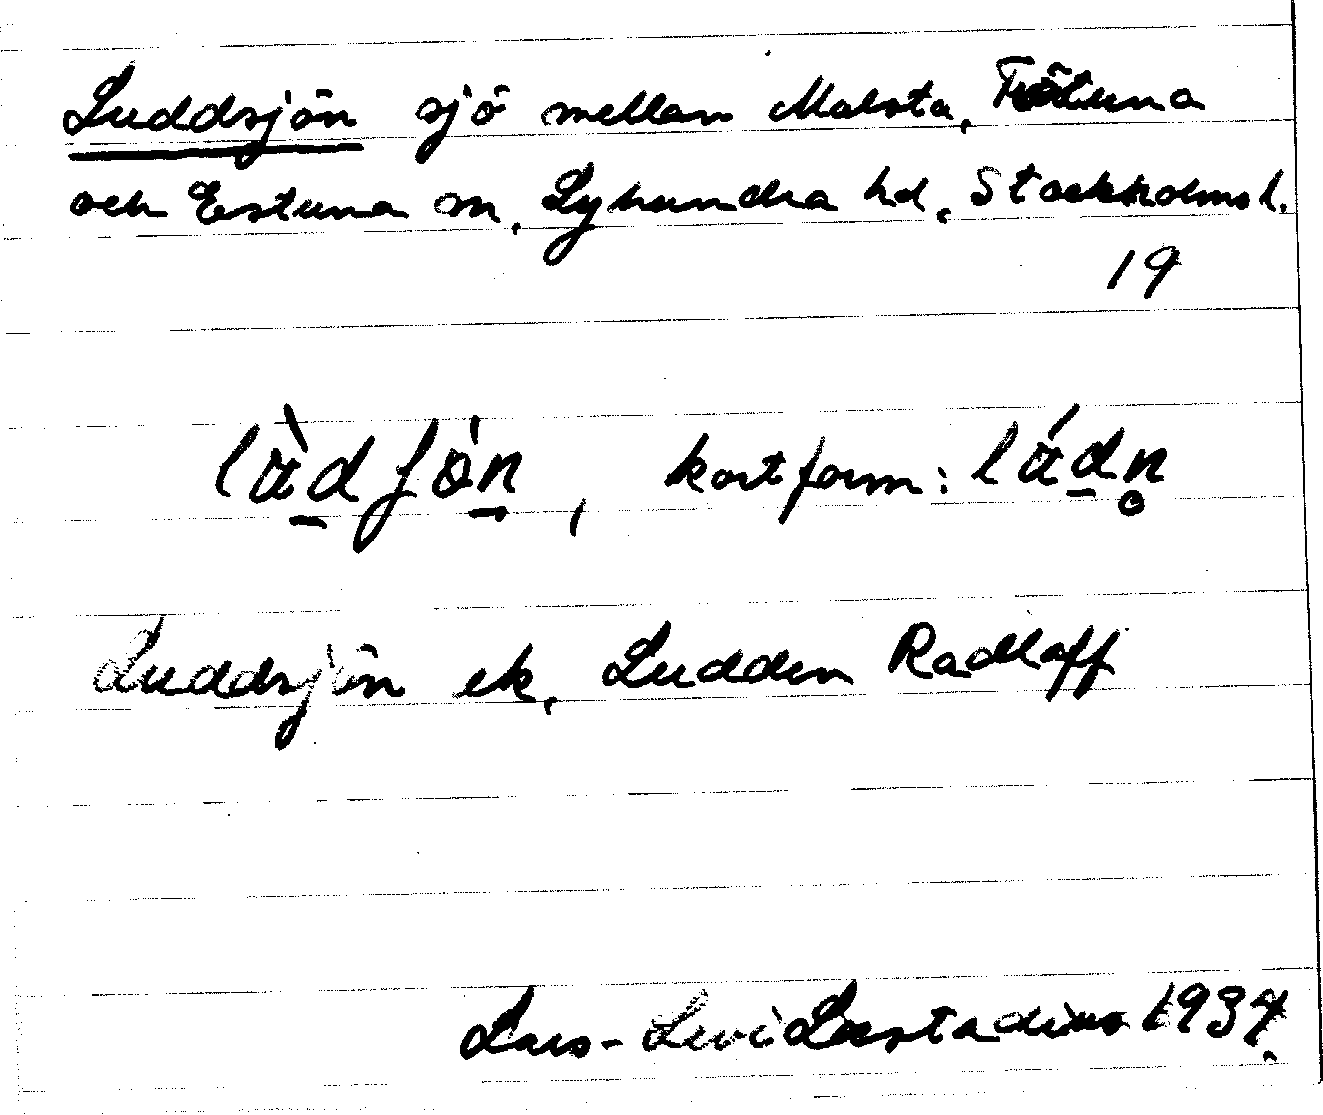 Luddsjön sjö mellan Malsta, Frötuna
och Estuna sn, Lyhundra hd, Stockholms l.
19
làd̲ʃòn̲, kortform: lád̲n̥
Luddsjön ek, Ludden Radloff
Lars-Levi Læstadius 1934.